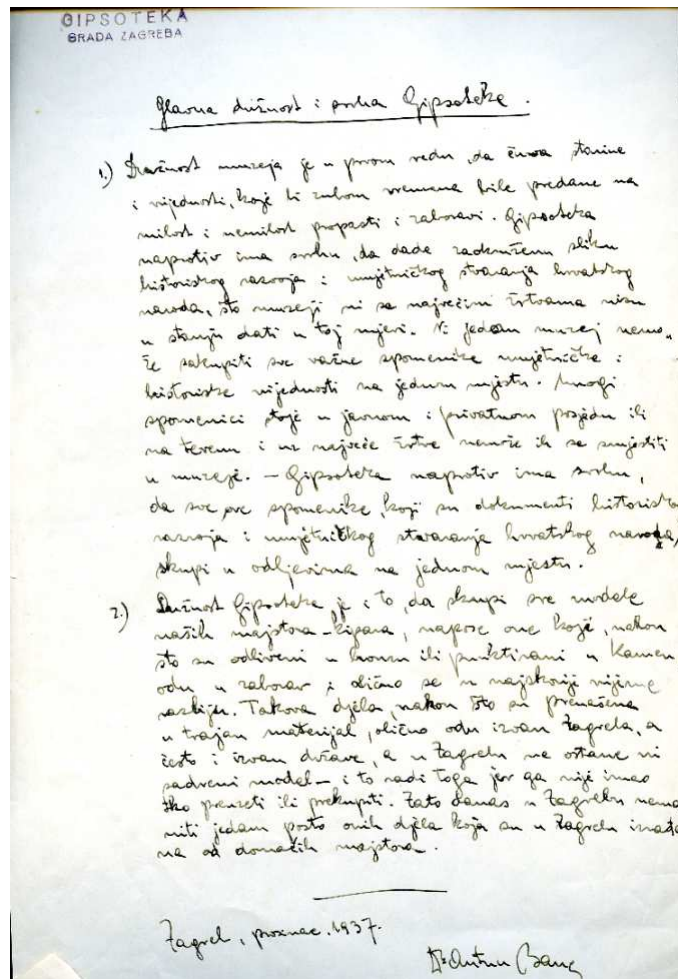 GIPSOTEKA
GRADA ZAGREBA
Glavna dužnost i svrha Gipsoteke.
1.) Dužnost muzeja je u prvom redu, da čuva starine
i vrijednosti, koje bi zubom vremena bile predane na
milost i nemilost propasti i zaboravi. Gipsoteka
naprotiv ima svrhu, da dade zaokruženu sliku
historiskog razvoja i umjetničkog stvaranja hrvatskog
naroda, što muzeji ni sa najvećim žrtvama nisu
u stanju dati u toj mjeri. Ni jedan muzej nemo„
že sakupiti sve važne spomenike umjetničke i
historiske vijednosti na jednom mjestu. Mnogi
spomenici stoje u javnom i privatnom posjedu ili
na terenu i uz najveće žrtve nemože ih se smjestiti
u muzeje. — Gipsoteka naprotiv ima svrhu,
da sve ove spomenike, koji su dokumenti historisko
razvoja i umjetničkog stvaranja hrvatskog naroda,
skupi u odljevima na jednom mjestu.
2.) Dužnost Gipsoteke je i to, da skupi sve modele
naših majstora-kipara, napose one koje, nakon
što su odliveni u broncu ili punktirani u kamen
odu u zaborav i obično se u najskorije vrijeme
razbiju. Takova djela, nakon što su prenašena
u trajan materijal, obično odu izvan Zagreba, a
često i izvan države, a u Zagrebu ne ostane ni
sadreni model — i to radi toga jer ga nije imao
tko preuzeti ili prekupiti. Zato danas u Zagrebu nema
niti jedan posto onih djela koja su u Zagrebu izrađe
na od domaćih majstora.
Zagreb, prosinac. 1937.
Dr Antun Bauer